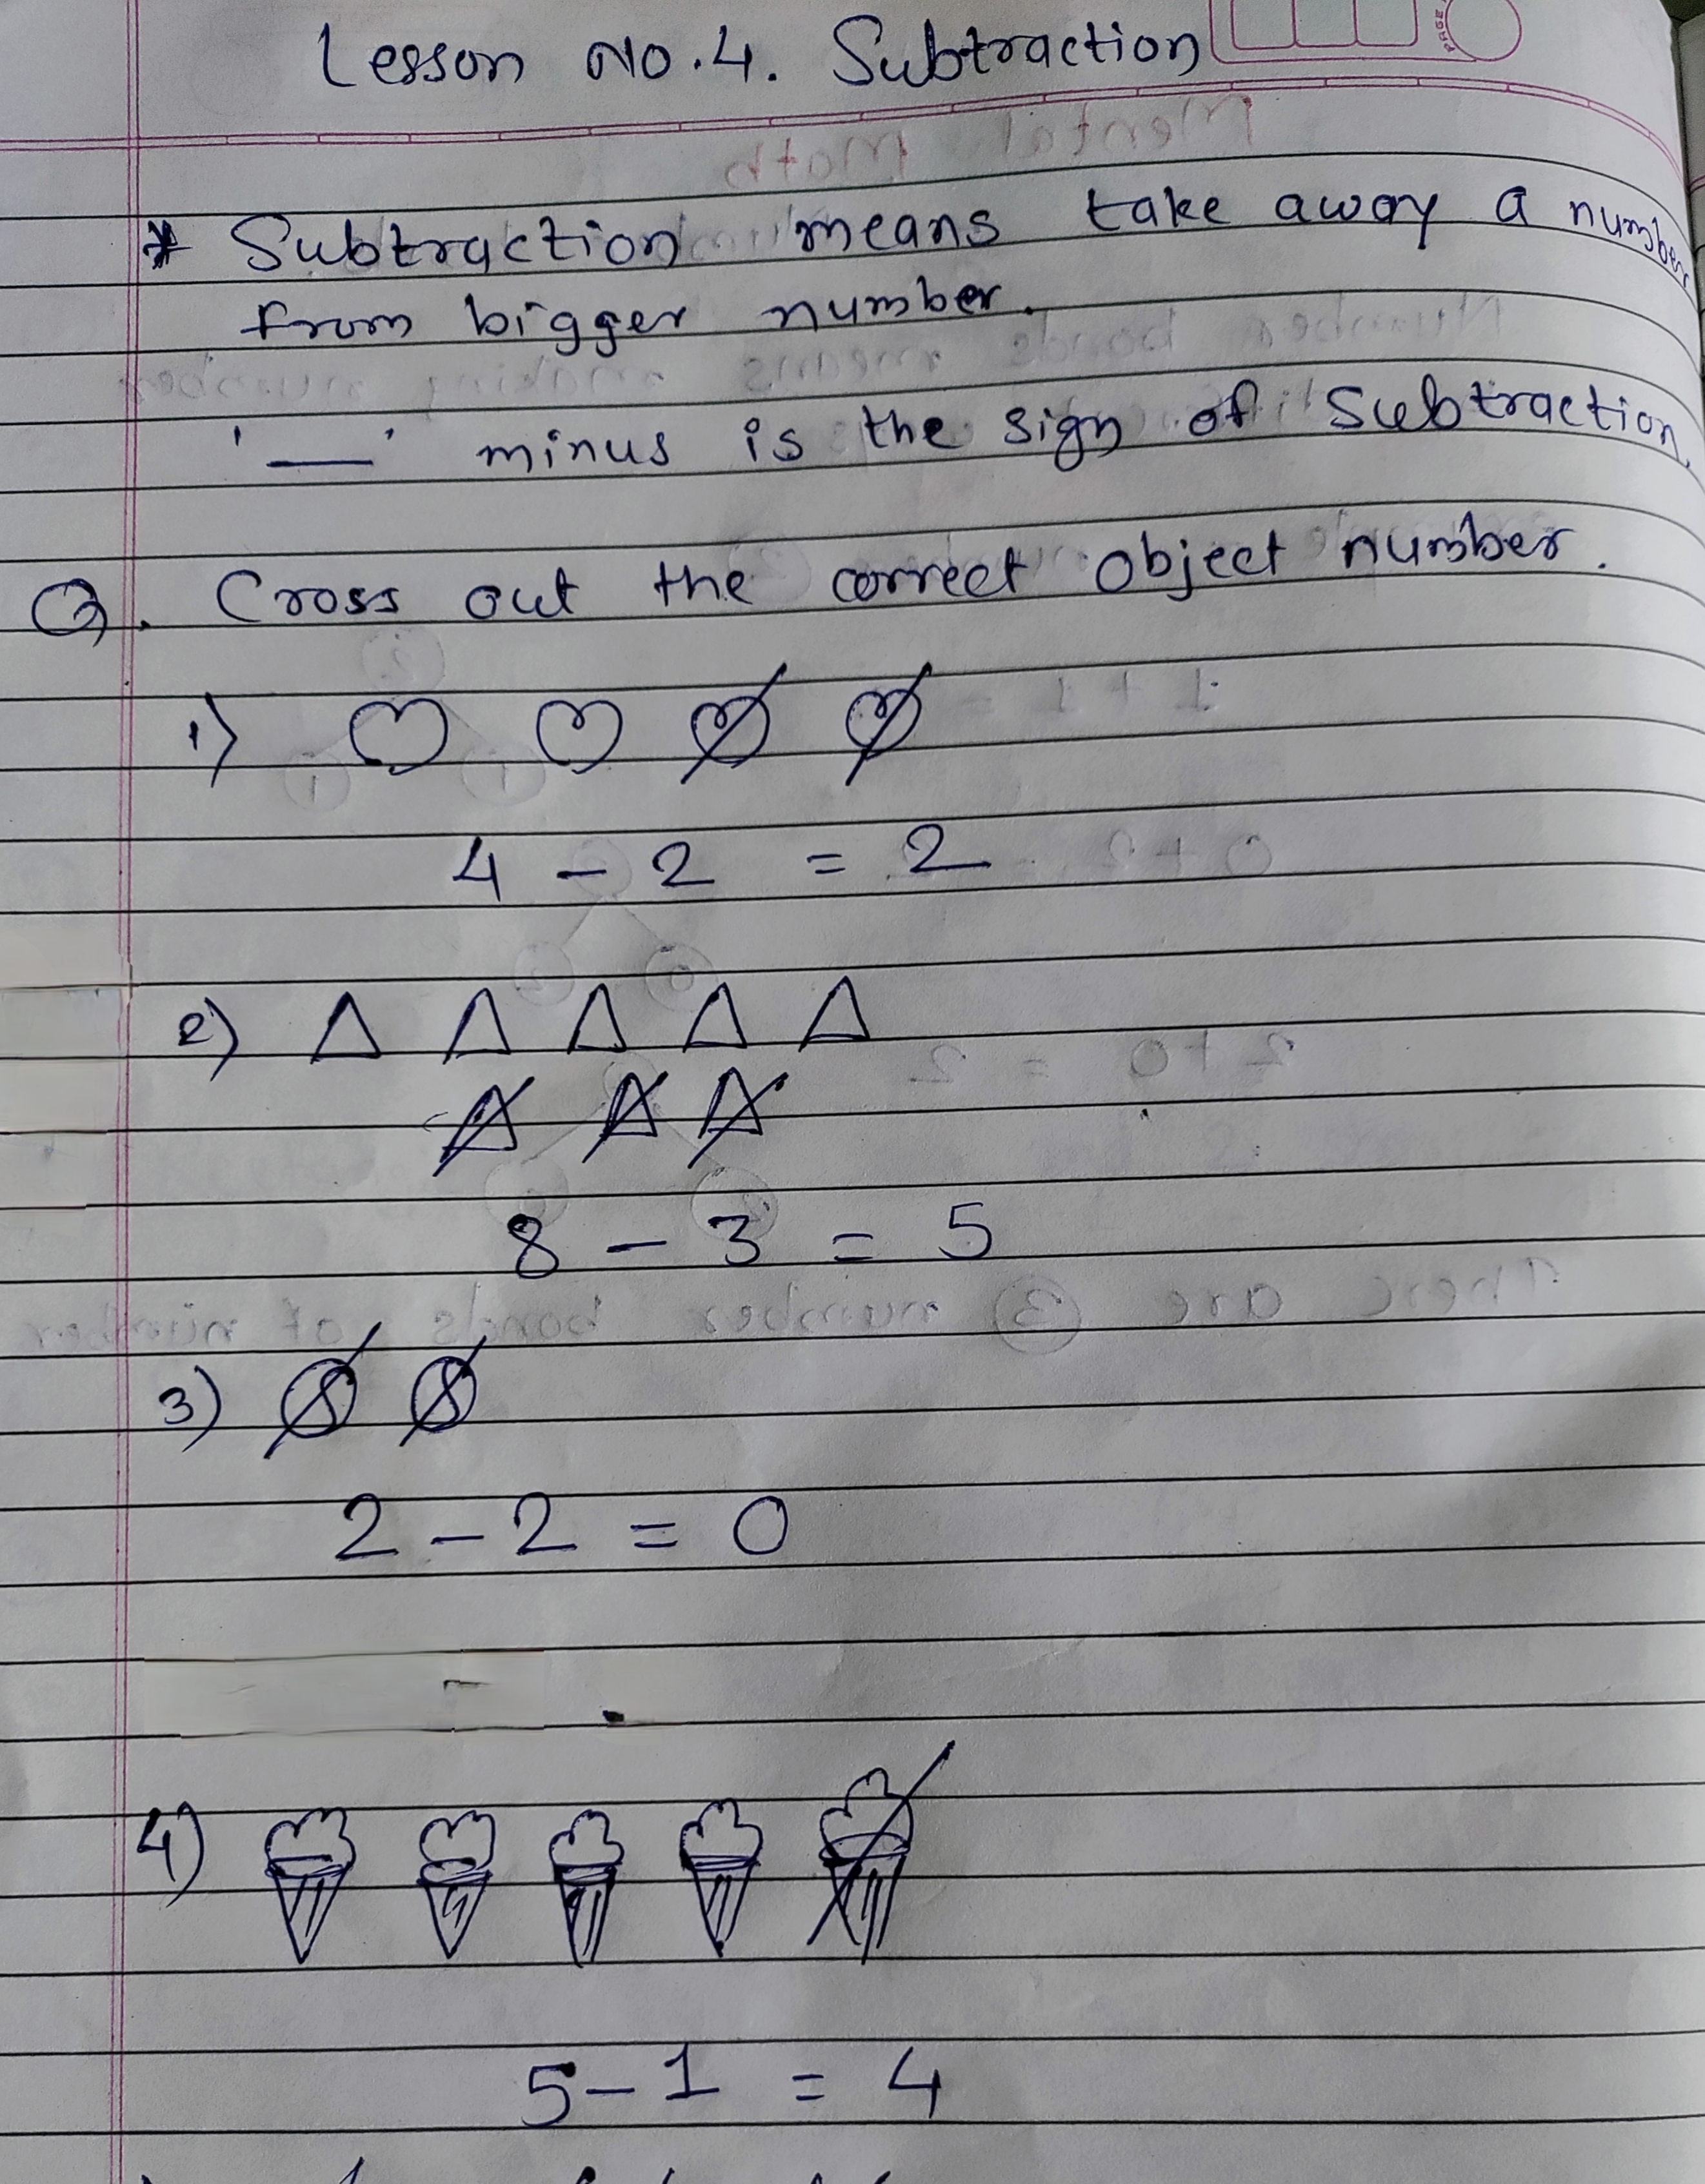 Lesson No.4. Subtraction
PAGE
* Subtraction means take away a number
from bigger number.
'—' minus is the sign of Subtraction.
Q. Cross out the correct object number.
1)
4 - 2 = 2
2)
8 - 3 = 5
3)
2 - 2 = 0
4)
5 - 1 = 4